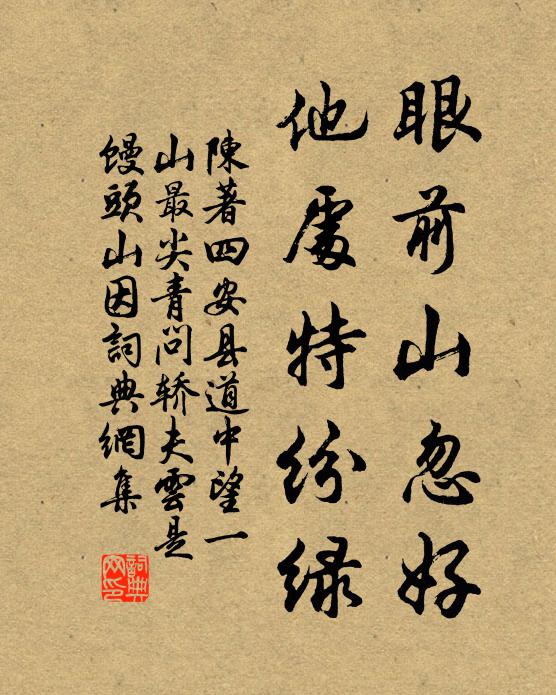 眼前山忽好
他處特紛綠
陳著四安县道中望一
山最尖青問轿夫雲是
饅頭山因詞典網集
詞典
网印